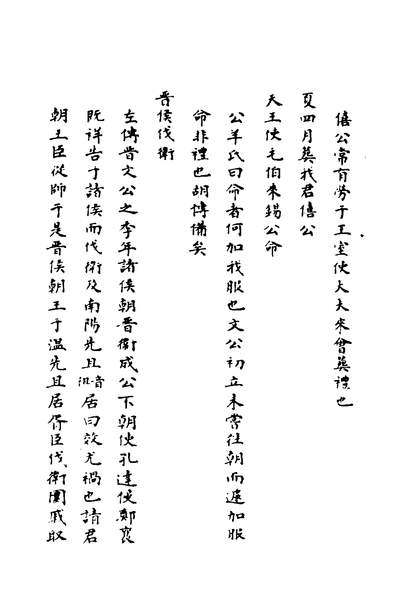 僖公嘗有勞于王室使大夫來會葬禮也
夏四月葬我君僖公
天王使毛伯來錫公命
公羊氏曰命者何加我服也文公初立未嘗往朝而遽加服
命非禮也胡傳備矣
晉侯伐衛
左傳晉文公之季年諸侯朝晉衛成公不朝使孔達侵鄭襄
既祥告于諸侯而伐衛及南陽先且沮音居曰效尤禍也請君
朝王臣從師于是晉侯朝王于溫先且居胥臣伐衛圍戚取